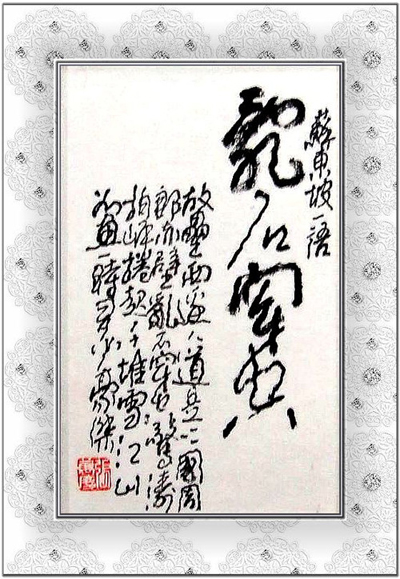 蘇東坡一語
亂石穿空
故壘西邊人道是三國周
郎赤壁亂石穿空驚濤
拍岸捲起千堆雪江山
如畫一時多少豪傑